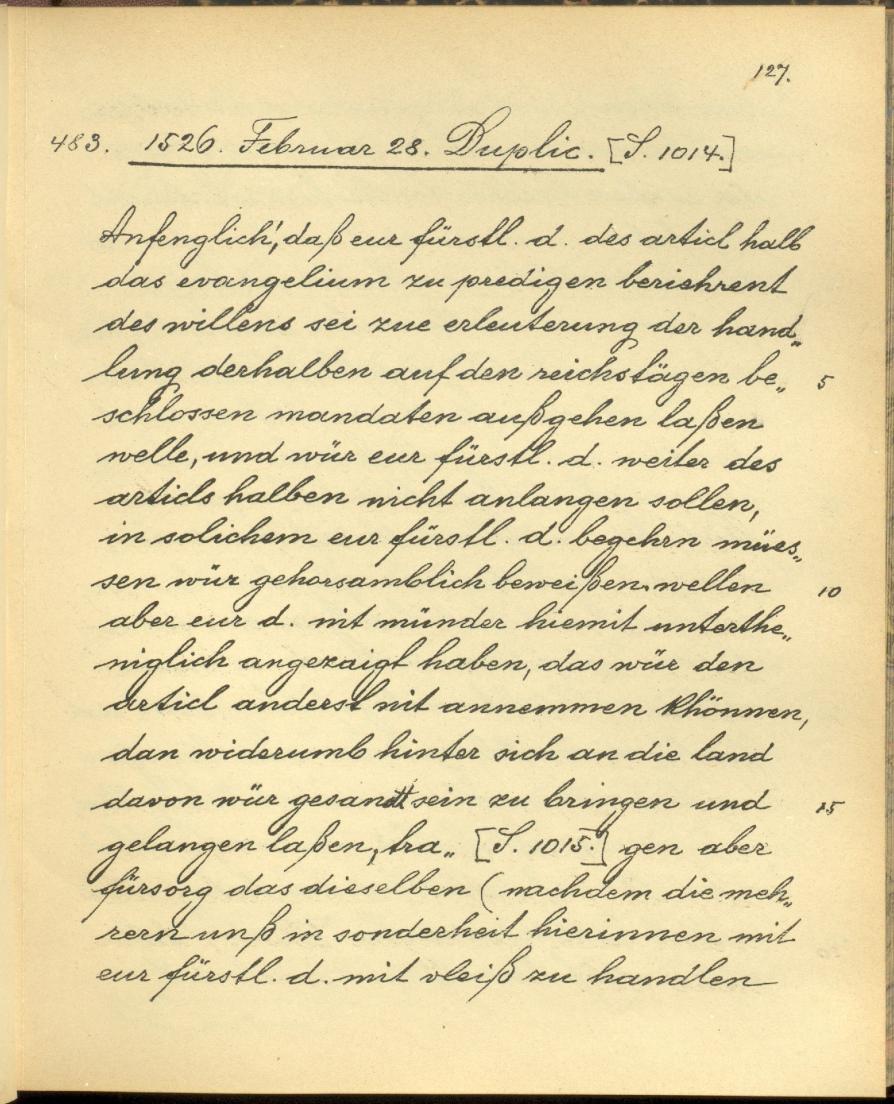 127.
483. 1526. Februar 28. Duplic. [S. 1014.]
Anfenglich', daß eur fürstl. d. des articl halb
das evangelium zu predigen beriehrent
des willens sei zue erleuterung der hand„
lung derhalben auf den reichstägen be„ 5
schlossen mandaten außgehen laßen
welle, und wür eur fürstl. d. weiter des
articls halben nicht anlangen sollen,
in solichem eur fürstl. d. begehrn mües„
sen wür gehorsamblich beweißen wellen 10
aber eur d. nit münder hiemit unterthe„
niglich angezaigt haben, das wür den
articl anderst nit annemmen khönnen,
dan widerumb hinter sich an die land
davon wür gesandt sein zu bringen und 15
gelangen laßen, tra„ [S. 1015.] gen aber
fürsorg das dieselben (nachdem die meh„
rern unß in sonderheit hierinnen mit
eur fürstl. d. mit vleiß zu handlen